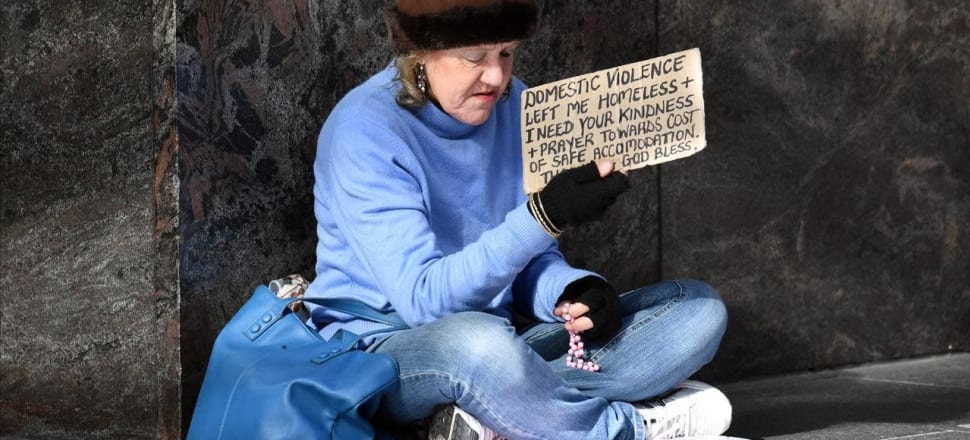 DOMESTIC VIOLENCE
LEFT ME HOMELESS +
I NEED YOUR KINDNESS
+ PRAYER TOWARDS COST
OF SAFE ACCOMODATION.
GOD BLESS.